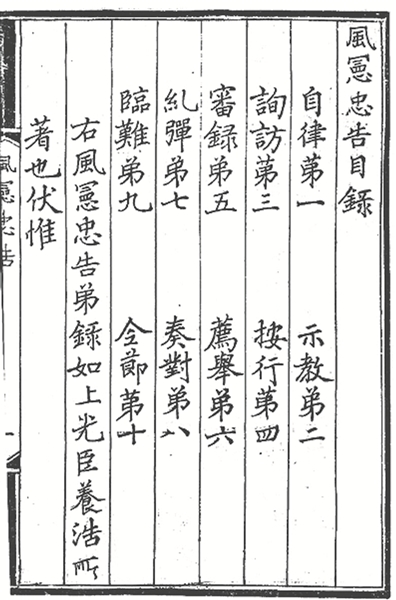 風憲忠告目錄
自律第一　示教第二
詢訪第三　按行第四
審録第五　薦舉第六
糺彈第七　奏對第八
臨難第九　全節第十
右風憲忠告第錄如上先臣養浩所
著也伏惟
風憲忠告
一